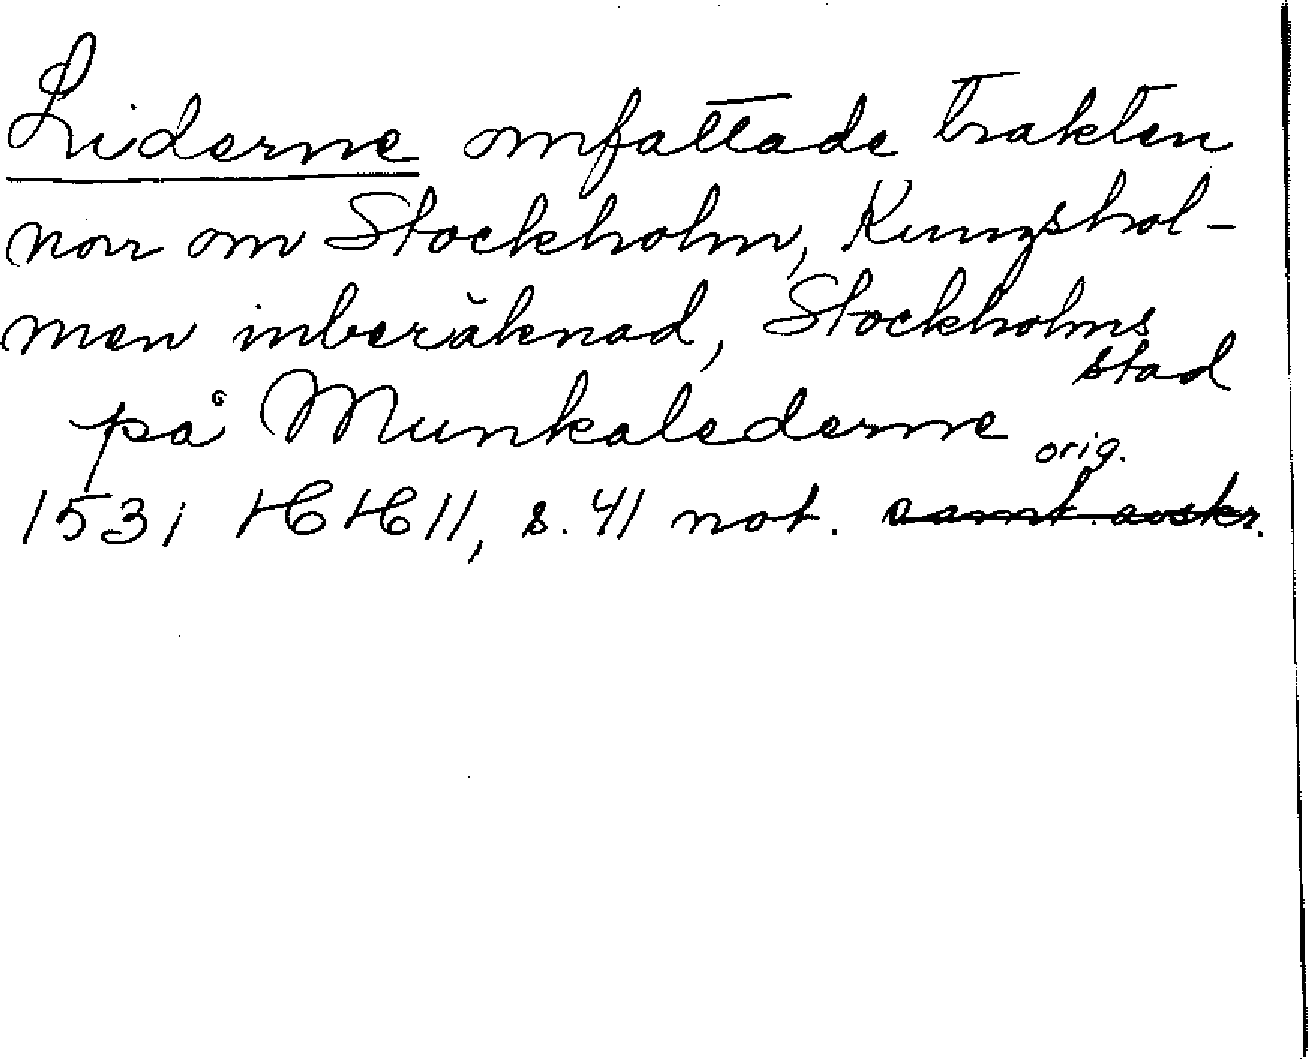 Liderne omfattade trakten
norr om Stockholm, Kungshol-
men inberäknad, Stockholms
stad
på Munkalederne
orig.
1531 HH 11, s. 41 not. samt. avskr.